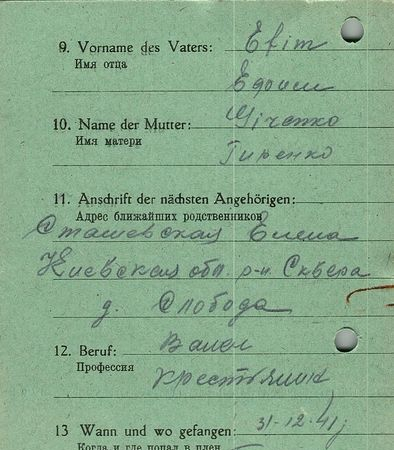 9. Vorname des Vaters: Efim
Имя отца
10. Name der Mutter:
Имя матери Гиренко
11. Anschrift der nächsten Angehörigen:
Адрес ближайших родственников
Сташевская Елена
Киевская обл. р-н. Сквера
д. Слобода
12. Beruf:
Профессия
13 Wann und wo gefangen: 31-12-41
Когда и где попал в плен